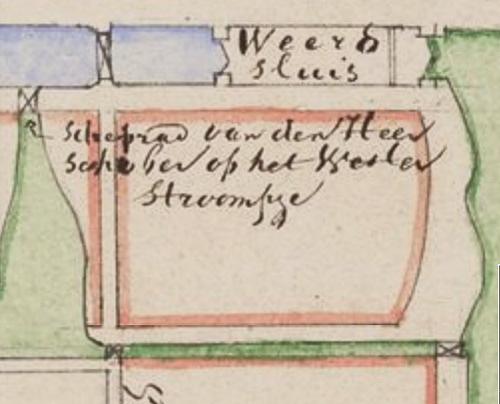 Weerd
sluis
R
scheprad van den Heer
Schober op het Wester
Stroompje